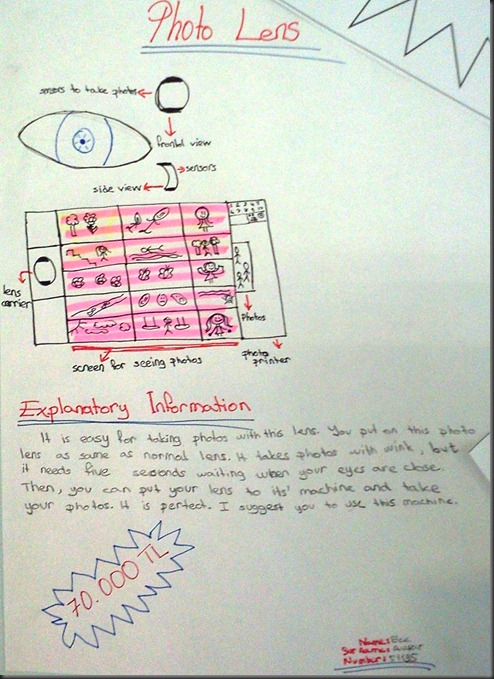 Photo Lens
sensors to take photos
frontal view
sensors
side view
lens
carrier
photos
photo
printer
screen for seeing photos
Explanatory Information
It is easy for taking photos with this lens. You put on this photo
lens as same as normal lens. It takes photos with wink, but
it needs five seconds waiting when your eyes are close.
Then, you can put your lens to its' machine and take
your photos. It is perfect. I suggest you to use this machine.
70.000 TL
Name: Ece
Surname:
Number: 51185